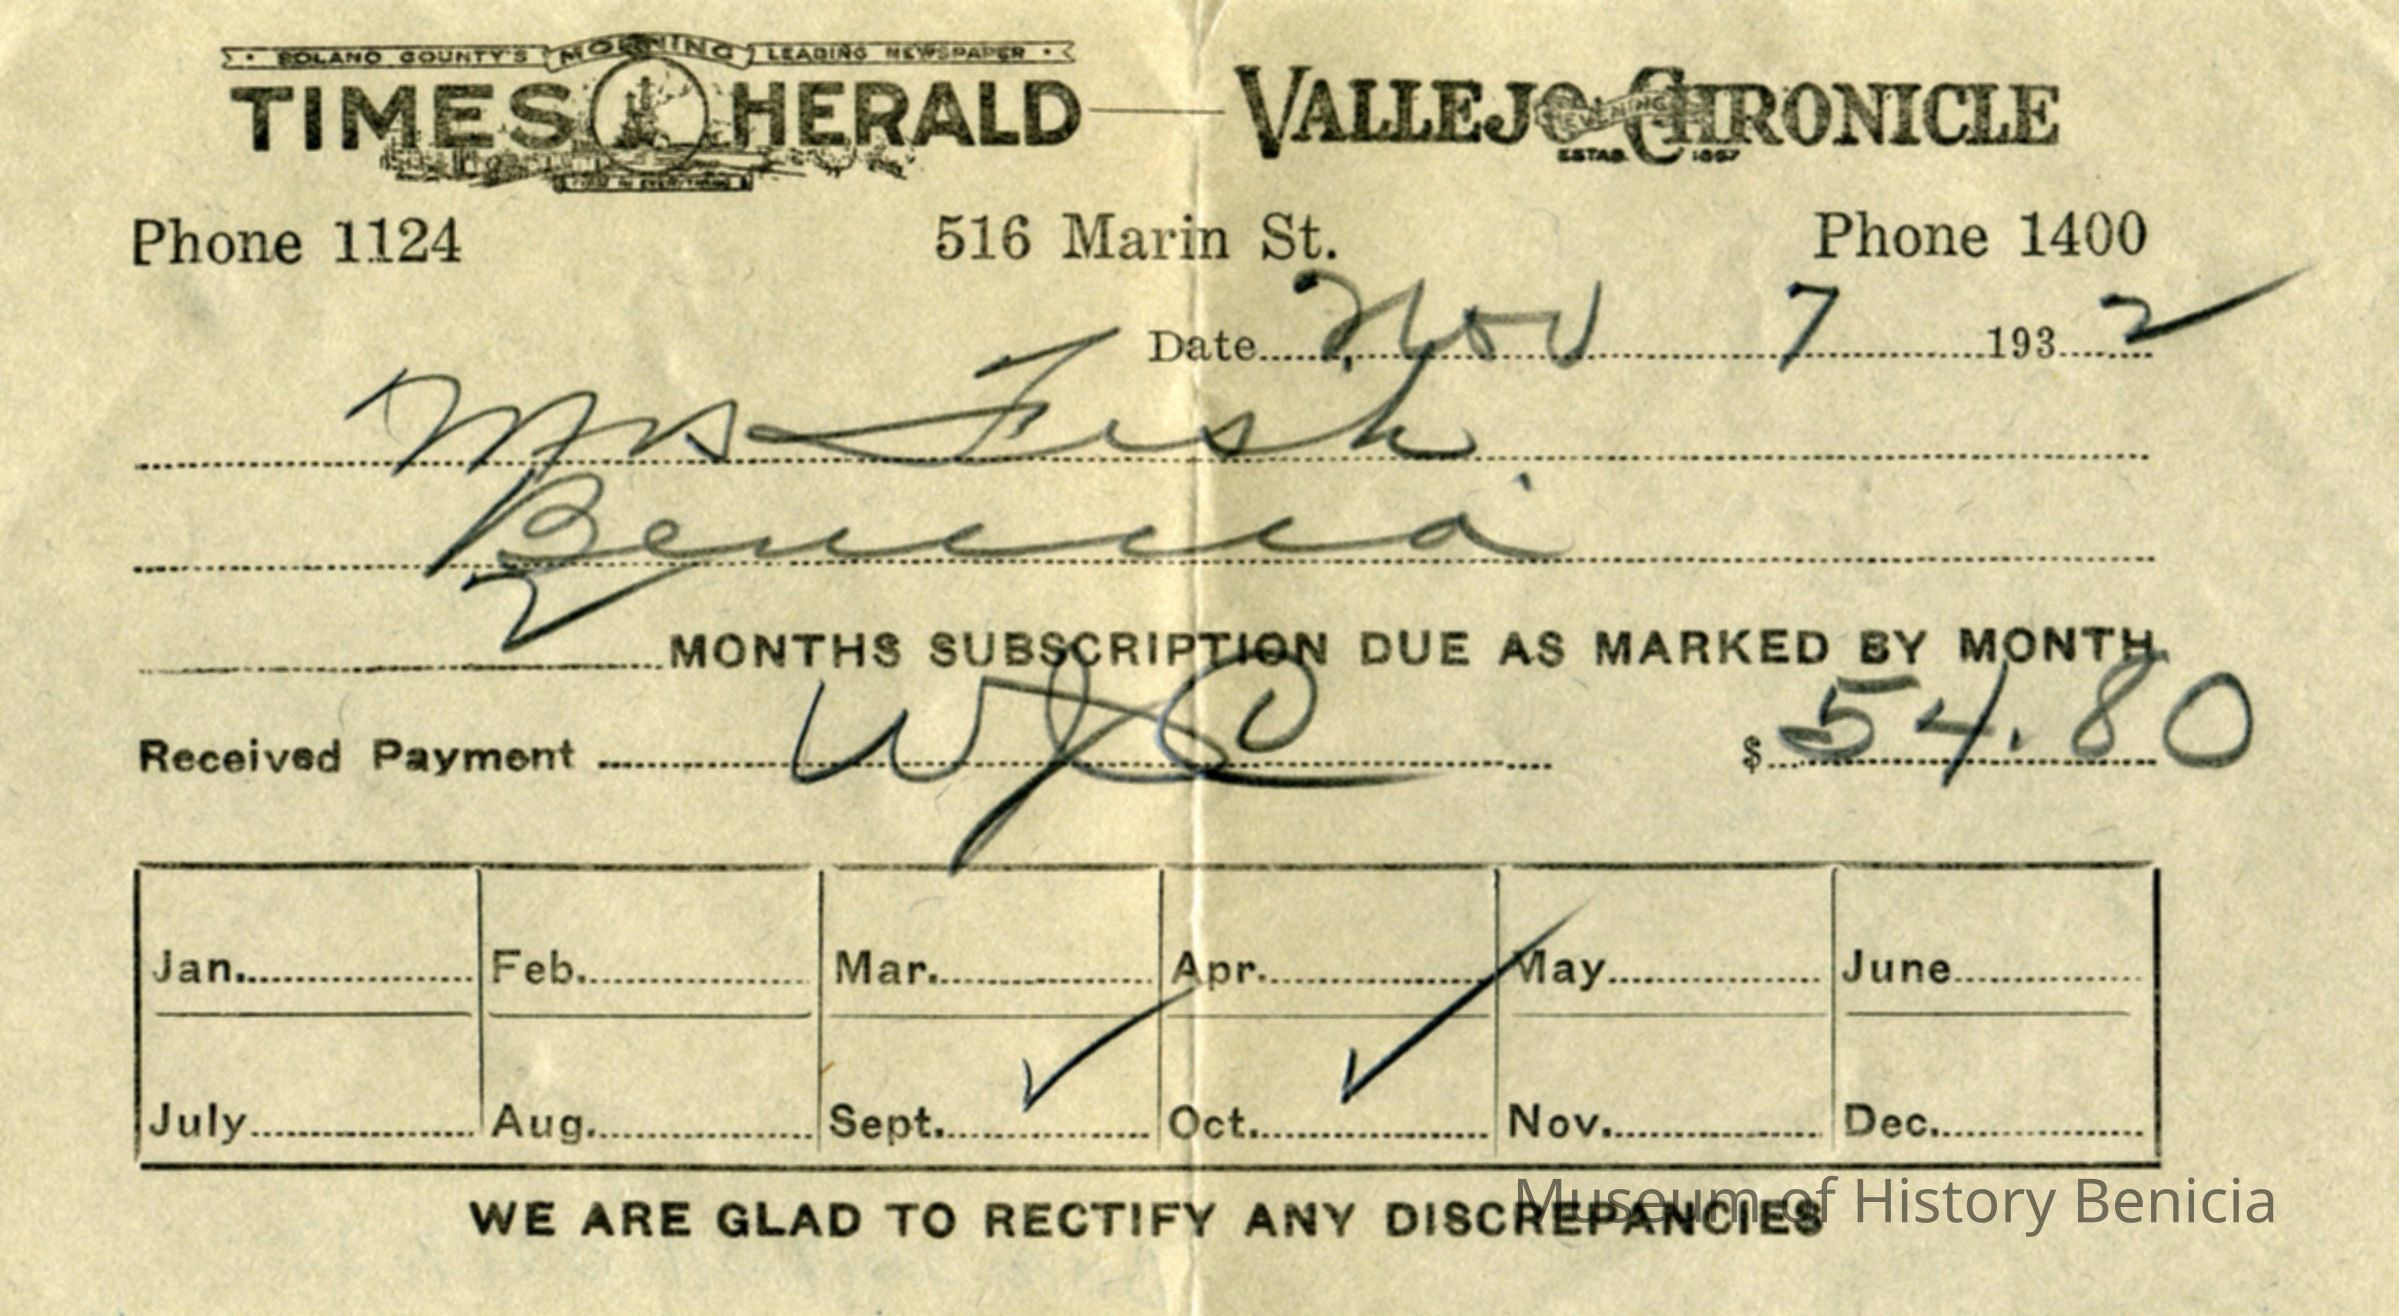 SOLANO COUNTY'S MORNING LEADING NEWSPAPER
TIMES HERALD — VALLEJO EVENING CHRONICLE
ESTAB. 1867
Phone 1124 516 Marin St. Phone 1400
Date Nov 7 1932
Mrs Fish
Benicia
2 MONTHS SUBSCRIPTION DUE AS MARKED BY MONTH
Received Payment WJC $54.80
Jan. Feb. Mar. Apr. May June
July Aug. Sept. ✓ Oct. ✓ Nov. Dec.
WE ARE GLAD TO RECTIFY ANY DISCREPANCIES
Museum of History Benicia